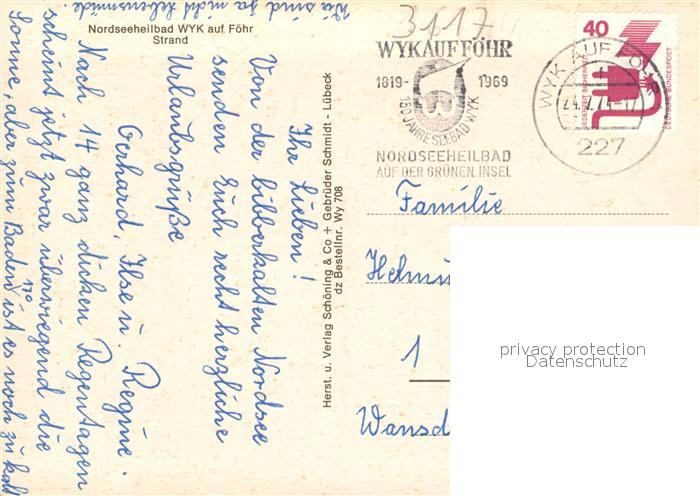 Nordseeheilbad WYK auf Föhr
Strand
Ihr Lieben!
Von der bibberkalten Nordsee
senden Euch recht herzliche
Urlaubsgrüße
Gerhard, Ilse u. Regine.
Nach 14 ganz dicken Regentagen
scheint jetzt zwar überwiegend die
Sonne, aber zum Baden ist es noch zu kalt
17°
Wir sind ja nicht lebensmüde.
Herst. u. Verlag Schöning & Co + Gebrüder Schmidt - Lübeck
dz Bestellnr. Wy 708
3117
WYK AUF FÖHR
1819- 1969
150 JAHRE SEEBAD WYK
NORDSEEHEILBAD
AUF DER GRÜNEN INSEL
WYK AUF FÖHR
24.7.74-17
227
40
JEDERZEIT SICHERHEIT
DEUTSCHE BUNDESPOST
Familie
Helmu
1
Wansd
privacy protection
Datenschutz